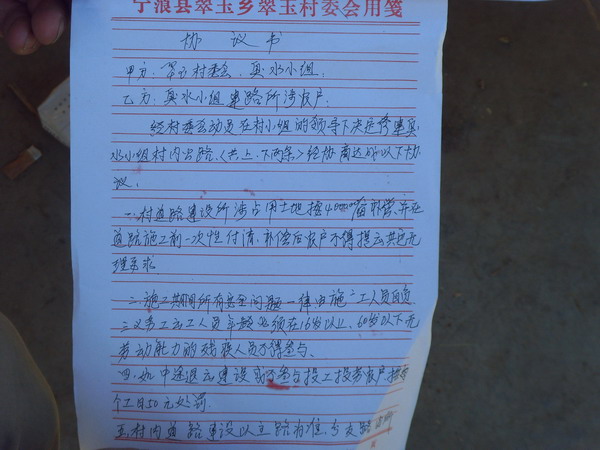 宁蒗县翠玉乡翠玉村委会用笺
协议书
甲方：翠玉村委会、真水小组。
乙方：真水小组建路所涉农户：
经村委会动员在村小组的领导下决定修建真
水小组村内公路，（共上、下两条）经协商达成以下协
议。
一、村道路建设所涉占用土地按4000元/亩补偿、并在
道路施工前一次性付清，补偿后农户不得提出其它无
理要求。
二、施工期间所有安全问题一律由施工人员自负
三、义务工出工人员年龄必须在16岁以上、60岁以下无
劳动能力的残疾人员不得参与、
四、如中途退出建设或不参与投工投劳农户按每
个工日50元处罚
五、村内道路建设以主路为准，